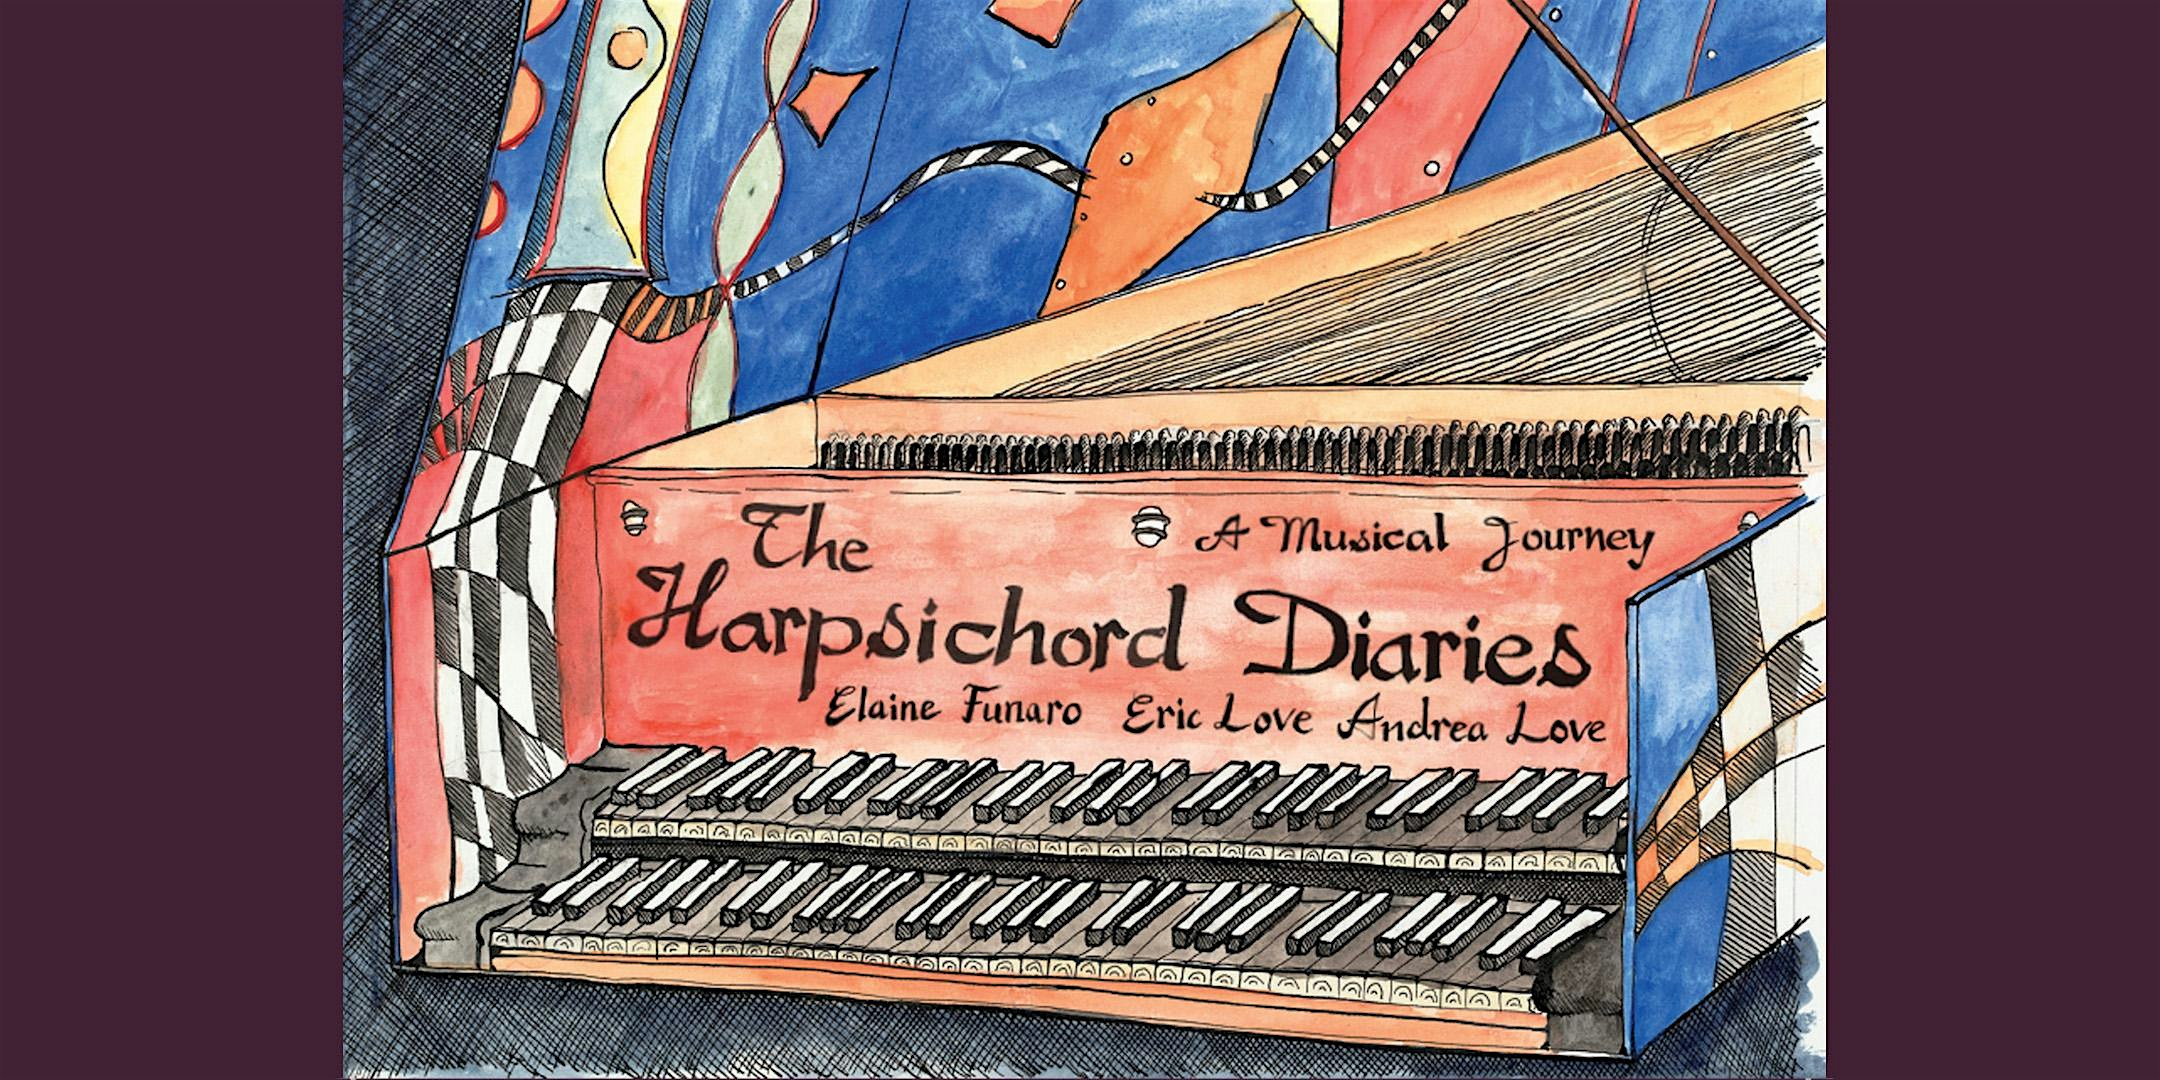 The
A Musical Journey
Harpsichord Diaries
Elaine Funaro Eric Love Andrea Love